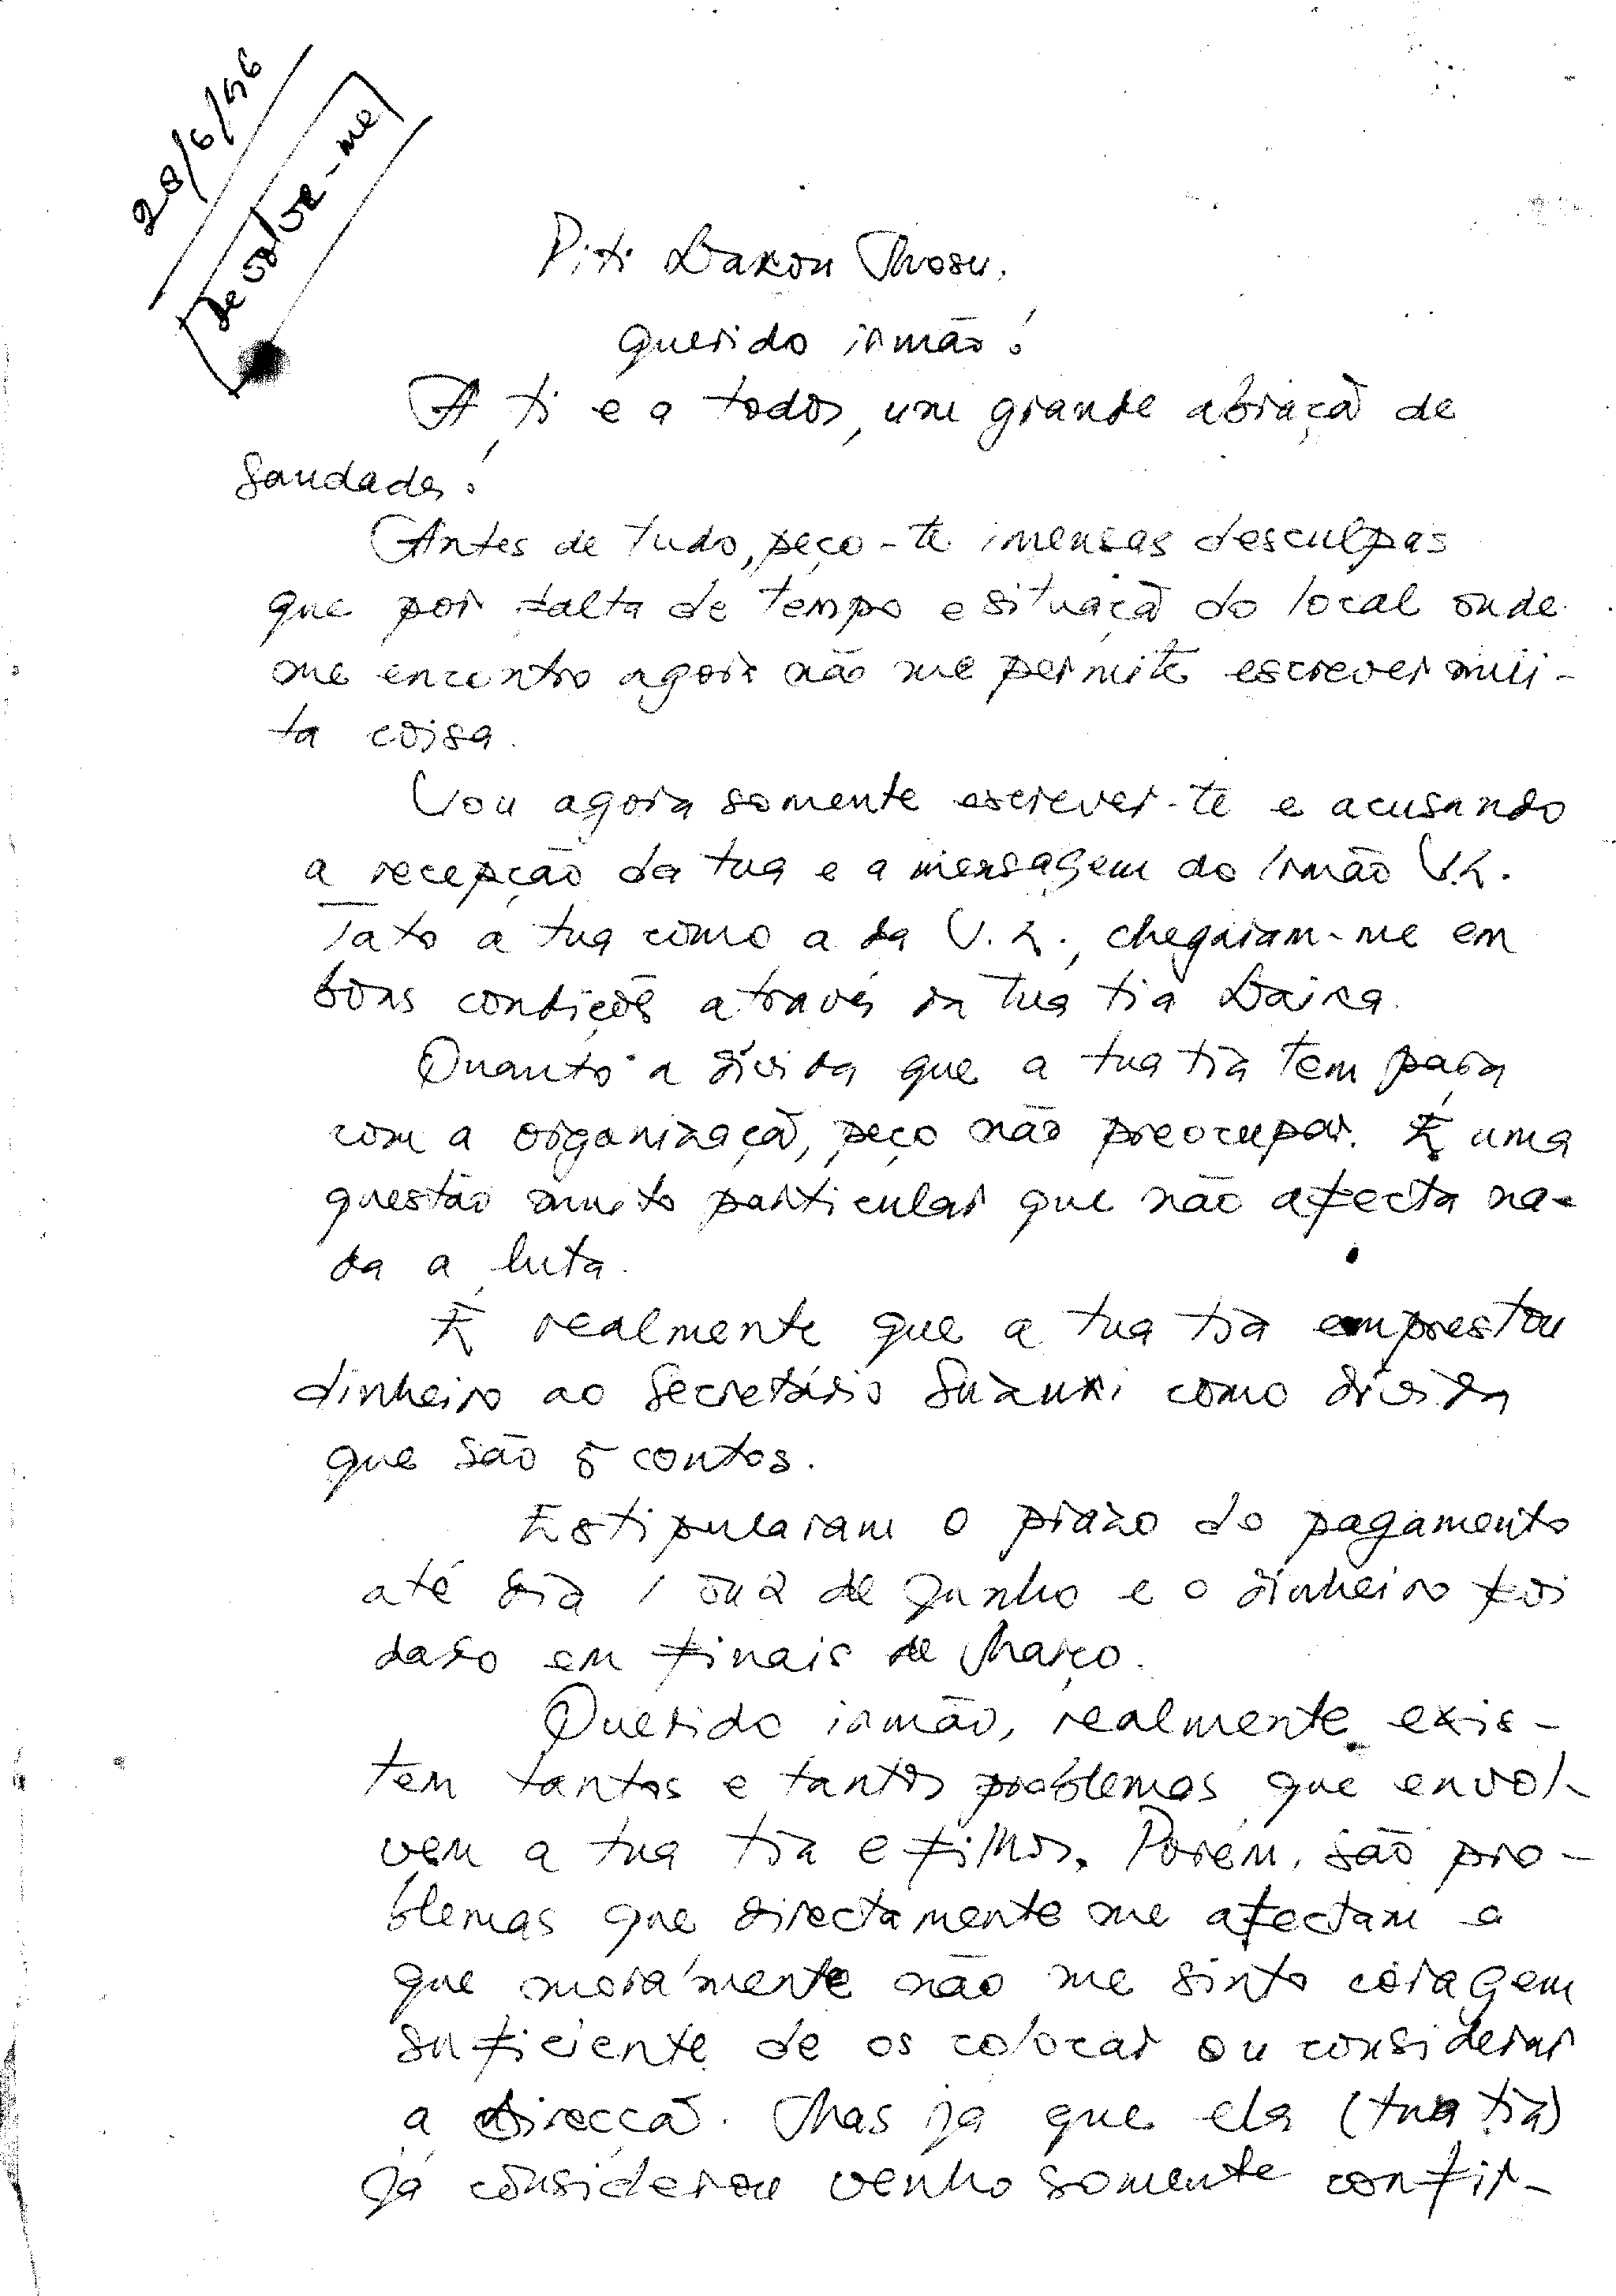 28/6/96
Devolve-me
Piti Daxon Thosu.
Querido irmão!
A ti e a todos, um grande abraçã de
Saudades!
Antes de tudo, peço-te imensas desculpas
que por falta de tempo e situaçã do local onde
me encontro agora não me permite escrever mui-
ta coisa.
Vou agora somente escrever-te e acusando
a recepção da tua e a mensagem do Irmão V.L.
Tato a tua como a da V.L., chegaram-me em
boas condiçoẽs através da tua tia Daisa.
Quanto a dívida que a tua tia tem para
com a organizaçã, peço não preocupar. É uma
questão muito particular que não afecta na-
da a luta.
É realmente que a tua tia emprestou
dinheiro ao Secretário Suzuki como dívida
que são 5 contos.
Estipularam o prazo do pagamento
até dia 1 ou 2 de Junho e o dinheiro foi
dado em finais de Março.
Querido irmão, realmente exis-
tem tantos e tantos problemas que envol-
vem a tua tia e filhos. Porém, são pro-
blemas que directamente me afectam e
que moralmente não me sinto coragem
suficiente de os colocar ou considerar
a direcçã. Mas já que ela (tua tia)
já considerou venho somente confir-